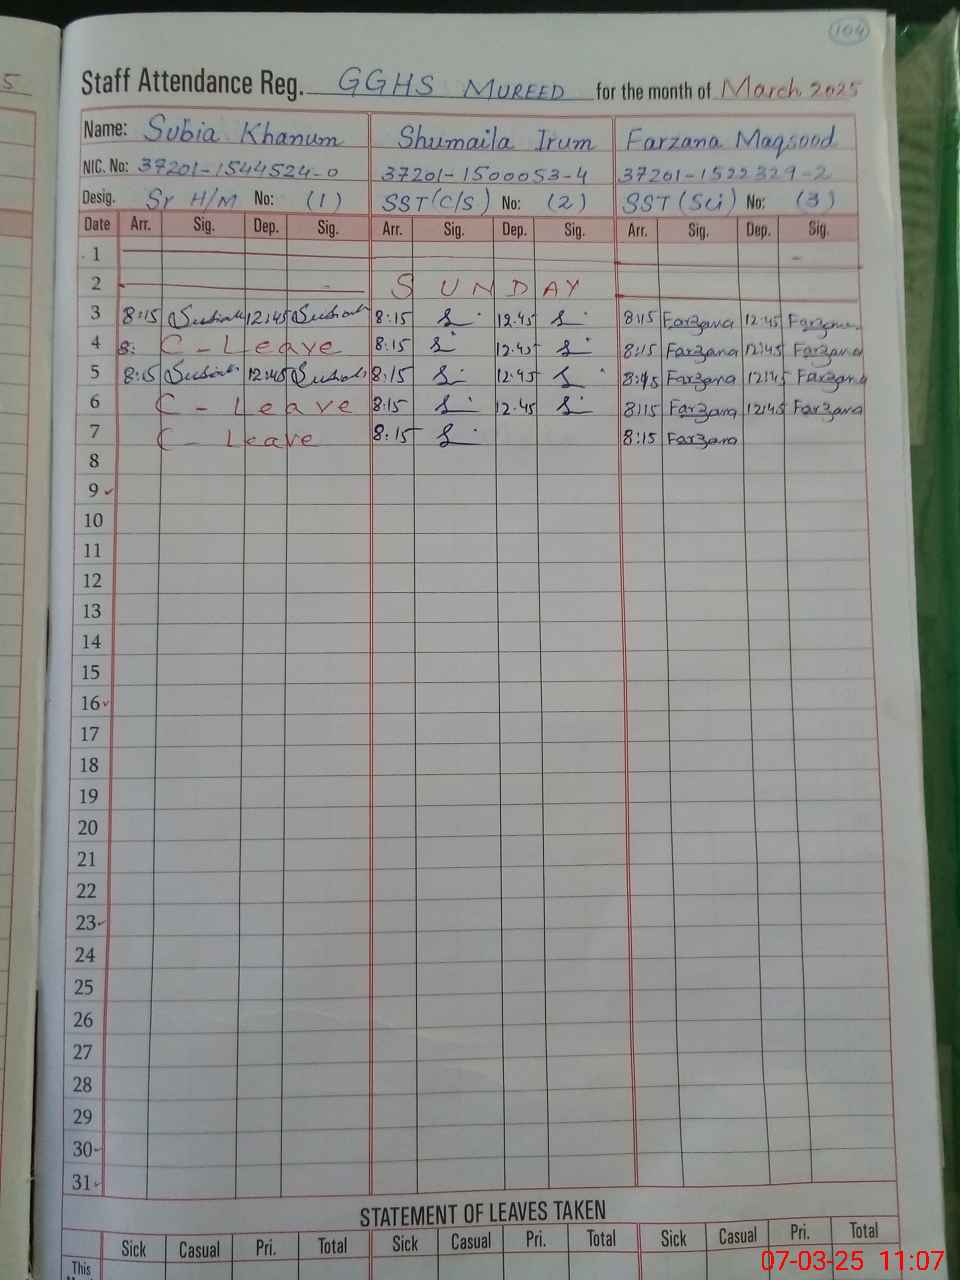 104
5
Staff Attendance Reg. GGHS MUREED for the month of March 2025
Name: Subia Khanum Shumaila Irum Farzana Maqsood
NIC. No: 37201-1544524-0 37201-1500053-4 37201-1522329-2
Desig. Sr H/M No: (1) SST (C/S) No: (2) SST (Sci) No: (3)
Date Arr. Sig. Dep. Sig. Arr. Sig. Dep. Sig. Arr. Sig. Dep. Sig.
1
2 SUNDAY
3 8:15 12:45 8:15 12.45 8:15 Farzana 12:45 Farzana
4 8: C-Leave 8:15 12.45 8:15 Farzana 12:45 Farzana
5 8:15 12:45 8:15 12.45 8:15 Farzana 12:45 Farzana
6 C-Leave 8:15 12.45 8:15 Farzana 12:45 Farzana
7 C-Leave 8:15 8:15 Farzana
8
9
10
11
12
13
14
15
16
17
18
19
20
21
22
23
24
25
26
27
28
29
30
31
STATEMENT OF LEAVES TAKEN
Sick Casual Pri. Total Sick Casual Pri. Total Sick Casual Pri. Total
This
07-03-25 11:07